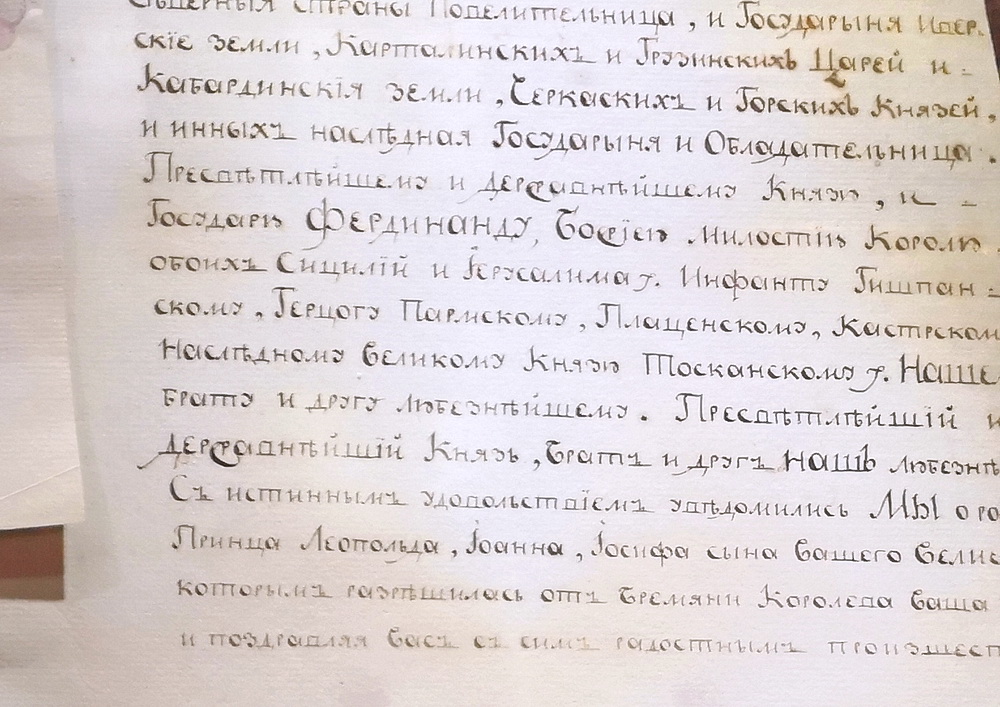 Сѣверныя страны Повелительница, и Государыня Ивер-
скіе земли, Карталинскихъ и Грузинскихъ Царей и -
Кабардинскія земли, Черкаскихъ и Горскихъ Князей,
и инныхъ наслѣдная Государыня и Обладательница.
Пресвѣтлѣйшему и державнѣйшему Князю, и -
Государю Фердинанду, Божіею милостію Королю
обоихъ Сицилій и Іерусалима ӌ. Инфанту Гишпан-
скому, Герцогу Пармскому, Плаценскому, Кастрском
Наслѣдному великому Князю Тосканскому ӌ. Наше
брату и другу любезнѣйшему. Пресвѣтлѣйшій и
державнѣйшій Князь, братъ и другъ нашъ любезнѣ
Съ истиннымъ удовольствіемъ увѣдомились Мы о ро
Принца Леопольда, Іоанна, Іосифа сына вашего Велич
которымъ разрѣшилась отъ бремяни Королева ваша
и поздравляя васъ съ симъ радостнымъ произшест